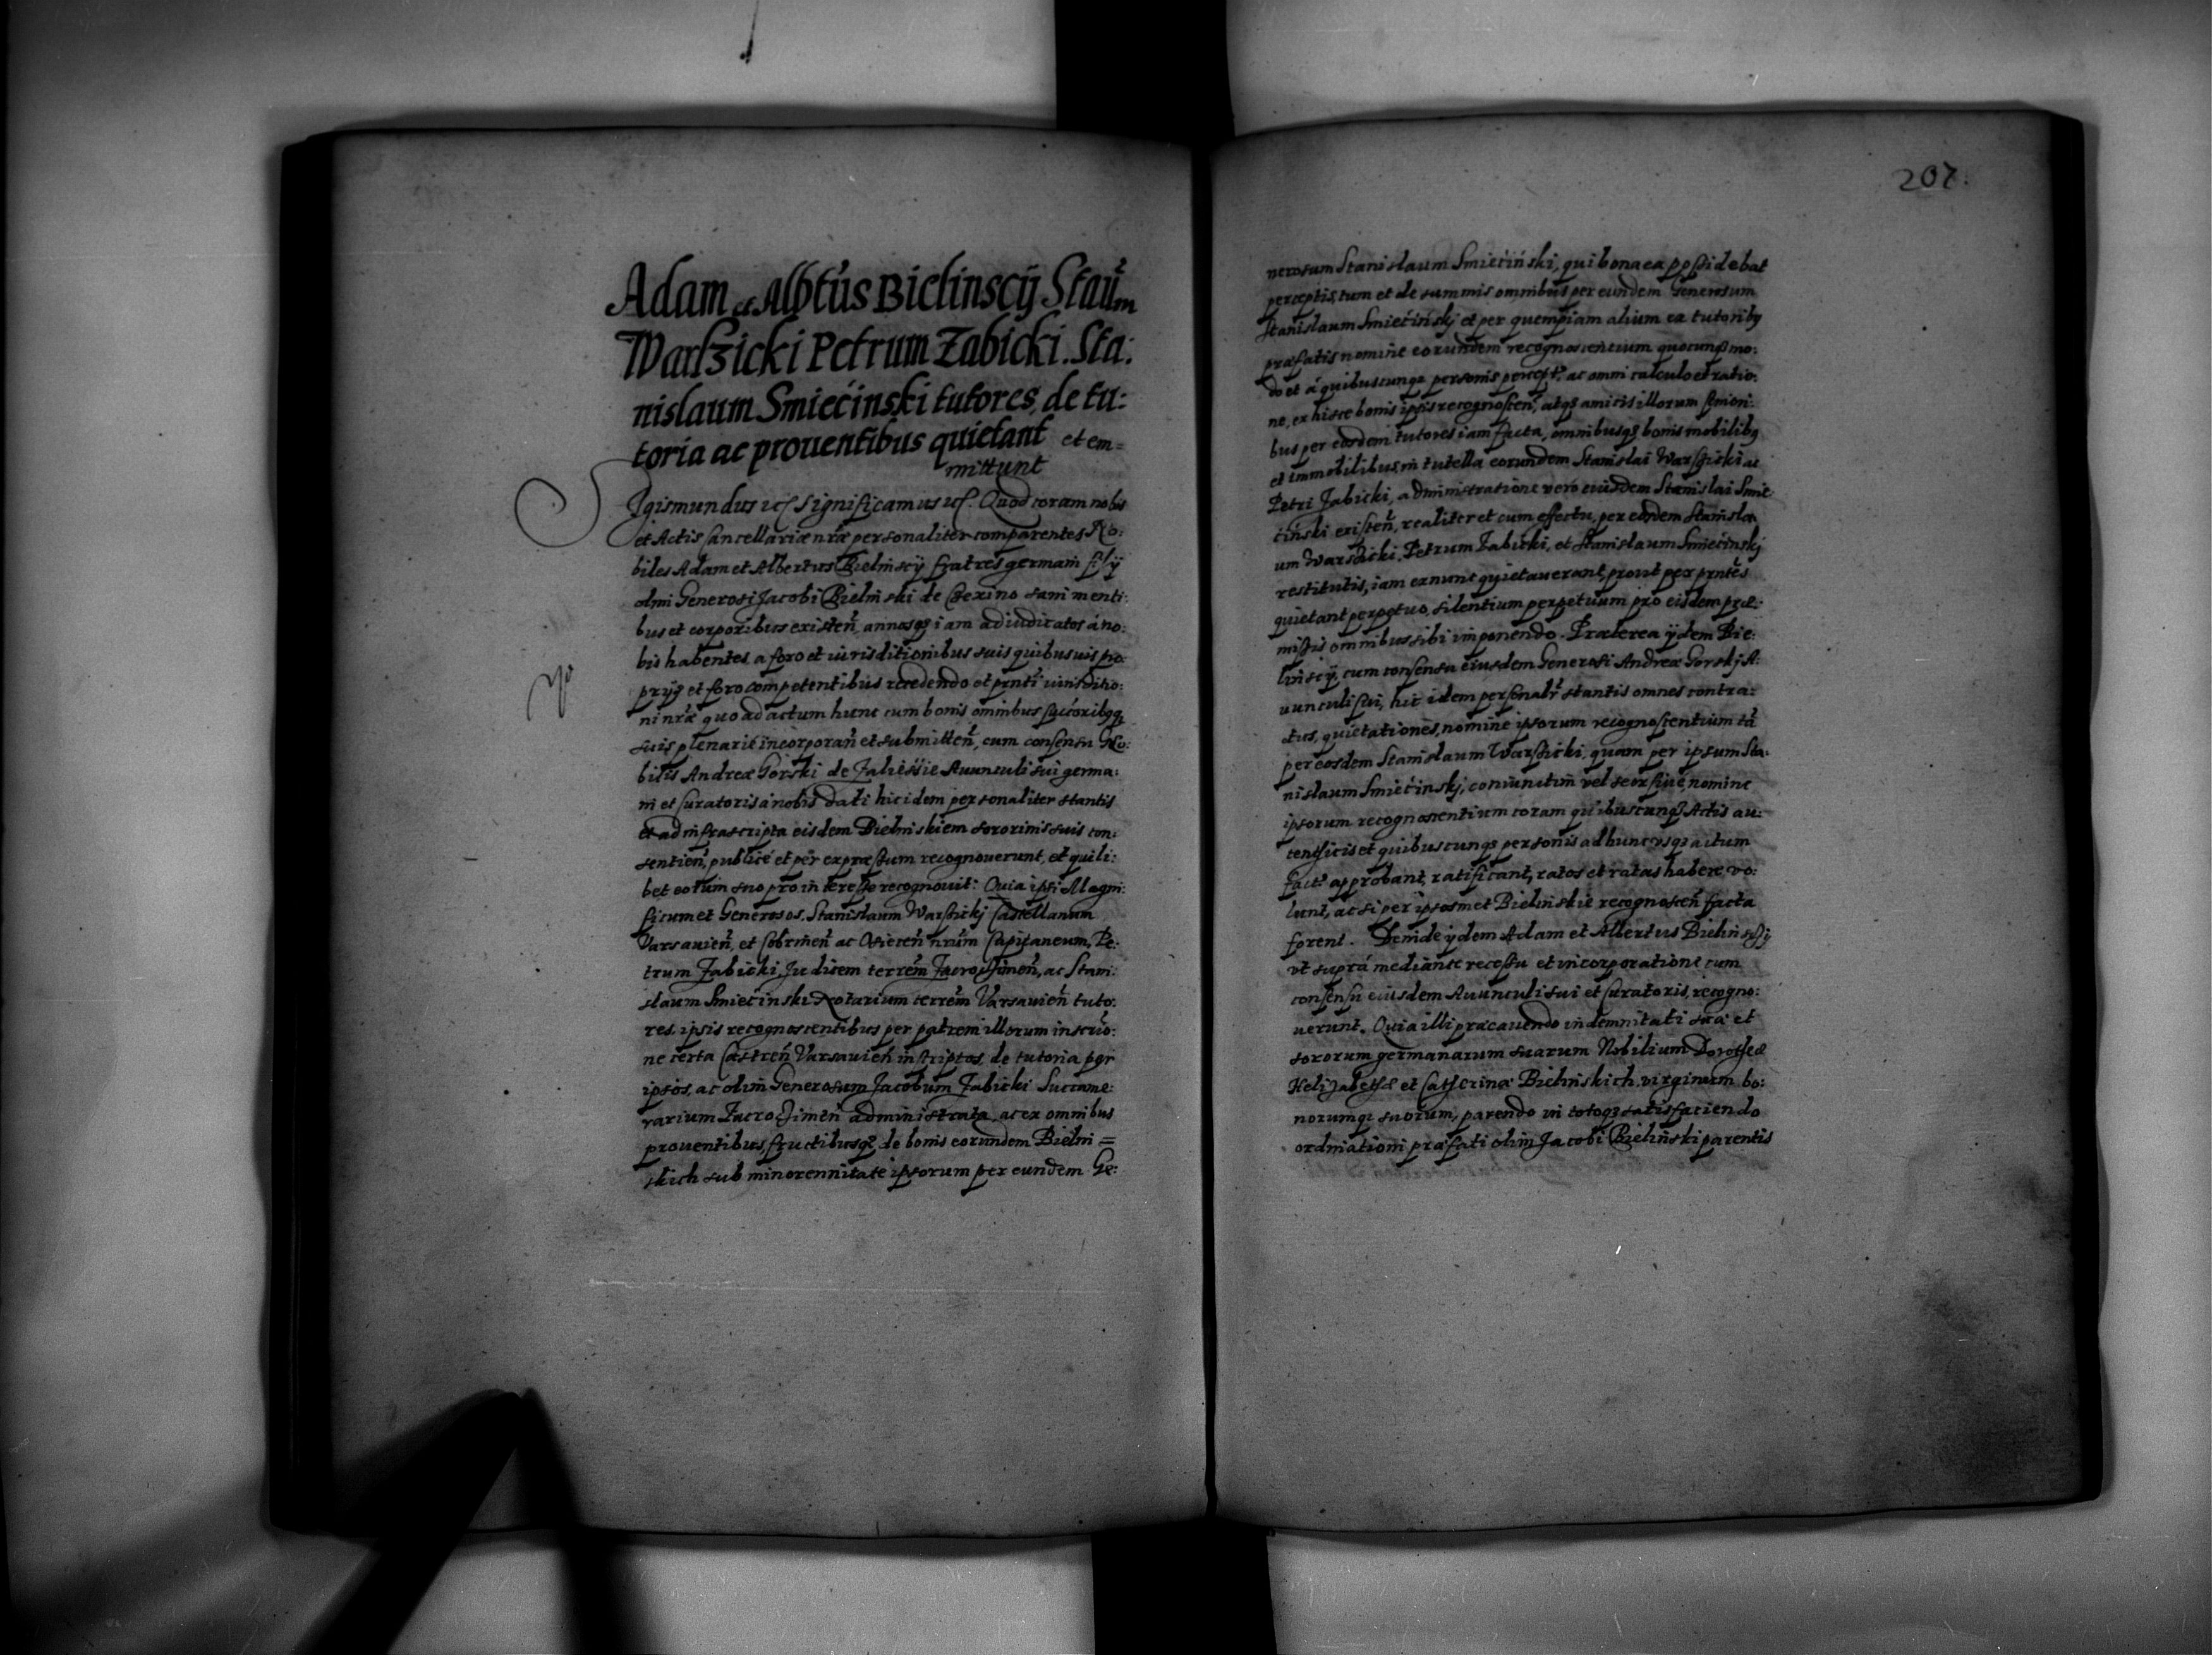 Adam et Albt̃us Bielinscÿ Staũm
Warszicki Petrum Zabicki. Sta:
nislaum Smiećinski tutores, de tu:
toria ac prouentibus quietant et em=
mittunt
Sigismundus etc Significamus etc. Quod coram nobis
et Actis Cancellariæ nr̃æ personaliter comparentes No:
biles Adam et Albertus Bielinscÿ fratres germani filÿ
olim Generosi Jacobi Bielinski de Czexino sani menti:
bus et corporibus existeñ, annosqȝ iam adiudicatos á no:
bis habentes a foro et iurisditionibus suis quibusuis pro:
prÿs et foro competentibus recedendo et pñti iurisditio:
ni nr̃æ quo ad actum hunc cum bonis omnibus
suis plenarie incorporañ et submitteñ, cum consensu No:
bilis Andreæ Górski de Auunculi sui germa:
ni et Curatoris á nobis dati hic idem personaliter stantis
et ad infrascripta eisdem Bielinskiem sororinis suis con:
sentieñ, publicé et per expressum recognouerunt, et quili:
bet eorum suo pro interesse recognouit: Quia ipsi Magni:
ficum et Generosos, Stanislaum Warszicki Castellanum
Varsauieñ, et ac Osieceñ nrũm Capitaneum, Pe:
trum Zabicki, Judicem terrem̃ ac Stani:
slaum Smiećinski Notarium terrem̃ Varsauieñ tuto:
res, ipsis recognoscentibus per patrem illorum inscrio:
ne certa Castreñ Varsauieñ inscriptos, de tutoria per
ipsos, ac olim Generosum Jacobum Zabicki Succame:
rarium administrata, ac ex omnibus
prouentibus, fructibusqȝ, de bonis eorundem Bielin=
skich sub minorennitate ipsorum per eundem Ge:
207.
nerosum Stanislaum Smiećiński, qui bona ea possidebat
perceptis, tum et de summis omnibus per eundem Generosum
Stanislaum Smiećiński et per quempiam alium ex tutoribȝ
præfatis nomine eorundem recognoscentium quocunqȝ mo:
do et á quibuscunqȝ personis percept̃, ac omni calculo et ratio:
ne, ex hisce bonis ipsis recognosceñ, atqȝ amicis illorum
bus per eosdem tutores iam facta, omnibusqȝ bonis mobilibȝ
et immobilibus, in tutella eorundem Stanislai Warszicki ac
Petri Zabicki, administratione vero eiusdem Stanislai Smie:
ćiński existeñ, realiter et cum effectu, per eosdem Stanisla:
um Warszicki, Petrum Zabicki, et Stanislaum Smiećinski
restitutis, iam ex nunc quietauerant, prout per pñtes
quietant perpetuo, silentium perpetuum pro eisdem præ:
missis omnibus sibi imponendo. Præterea ÿdem Bie:
linscÿ, cum consensu eiusdem Generosi Andreæ Gorski A:
uunculi sui, hic idem personalr̃ stantis omnes contra:
ctus, quietationes, nomine ipsorum recognoscentium tã
per eosdem Stanislaum Warszicki, quam per ipsum Sta:
nislaum Smiećinski, coniunctim vel seorsiue, nomine
ipsorum recognoscentium coram quibuscunqȝ Actis au:
tenticis et quibuscunqȝ personis ad hunc vsqȝ actum
fact̃ approbant, ratificant, ratos et ratas habere vo:
lunt, ac si per ipsosmet Bielinskie recognosceñ facta
forent. Deinde ÿdem Adam et Albertus Bielinscÿ
vt suprá mediante recessu et incorporatione cum
consensu eiusdem Auunculi sui et Curatoris, recogno:
uerunt. Quia illi præcauendo indemnitati suæ et
sororum germanarum suarum Nobilium Dorotheæ
Helizabethæ et Catherinæ Bielinskich virginum bo:
norumqȝ suorum, parendo in totoqȝ satisfaciendo
ordinationi præfati olim Jacobi Bieliński parentis